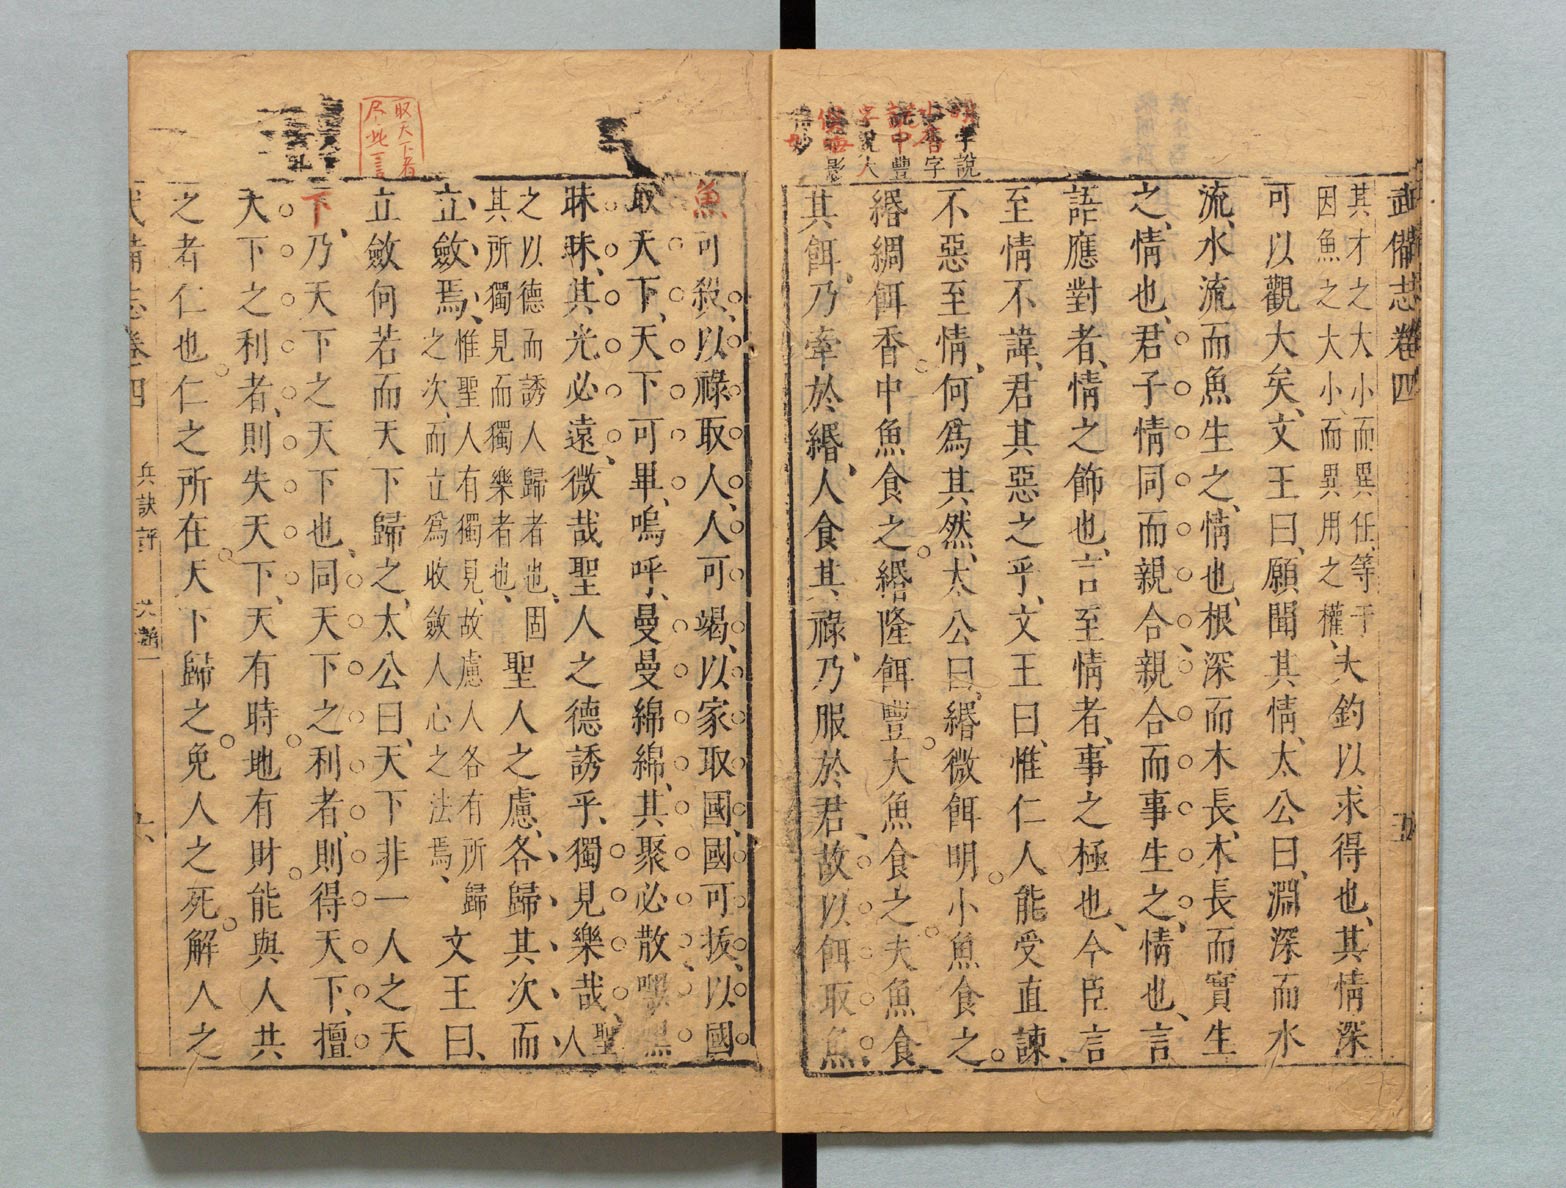 武備志卷四
五
其才之大小而異任等于
因魚之大小而異用之權大釣以求得也其情深
可以觀大矣文王曰願聞其情太公曰淵深而水
流水流而魚生之情也根深而木長木長而實生
之情也君子情同而親合親合而事生之情也言
語應對者情之飾也言至情者事之極也今臣言
至情不諱君其惡之乎文王曰惟仁人能受直諫
不惡至情何爲其然太公曰緡微餌明小魚食之
緡綢餌香中魚食之緡隆餌豐大魚食之夫魚食
其餌乃牽於緡人食其祿乃服於君故以餌取魚
明字說
小香字
說中豐
字說大
魚可殺以祿取人人可竭以家取國國可拔以國
取天下天下可畢嗚呼曼曼綿綿其聚必散嘿嘿
昧昧其光必遠微哉聖人之德誘乎獨見樂哉聖人
之以德而誘人歸者也固
其所獨見而獨樂者也聖人之慮各歸其次而
立斂焉惟聖人有獨見故慮人各有所歸
之次而立爲收斂人心之法焉文王曰
立斂何若而天下歸之太公曰天下非一人之天
下乃天下之天下也同天下之利者則得天下擅
天下之利者則失天下天有時地有財能與人共
之者仁也仁之所在天下歸之免人之死解人之
取天下者
尽此言
武備志卷四
兵訣評
六